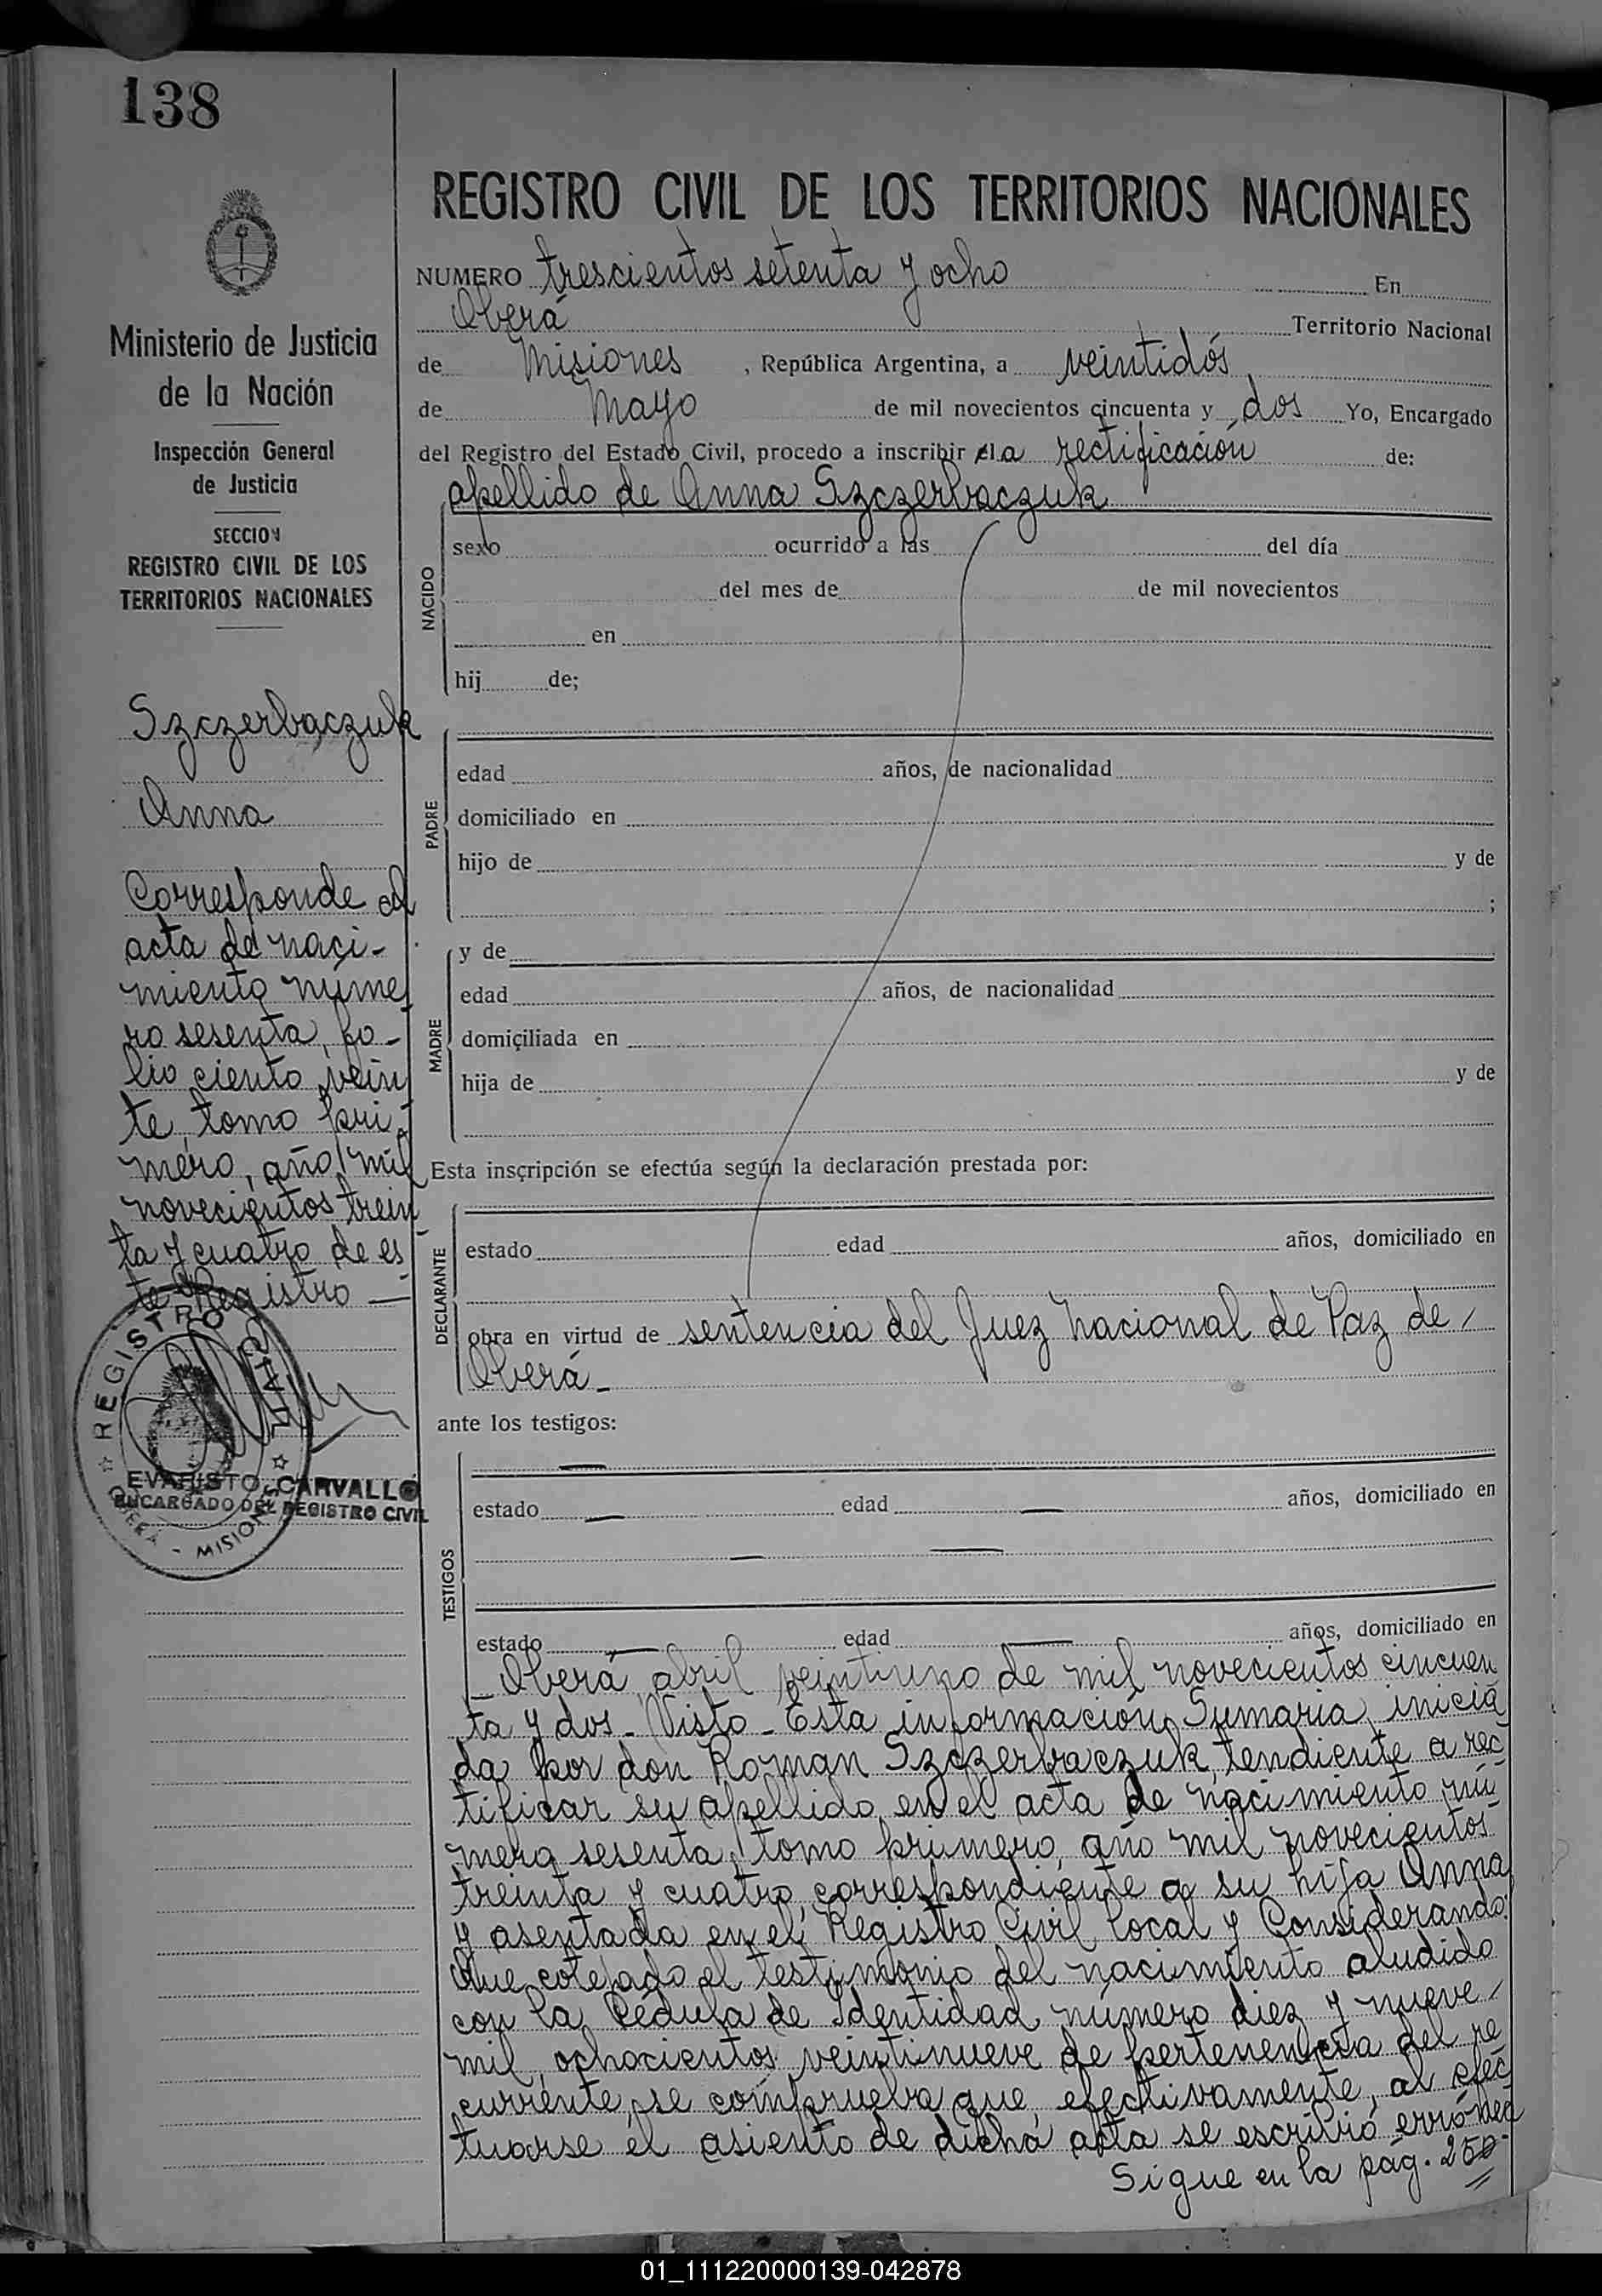 138
Ministerio de Justicia
de la Nación
Inspección General
de Justicia
SECCION
REGISTRO CIVIL DE LOS
TERRITORIOS NACIONALES
Szczerbaczuk
Anna
Corresponde al
acta de naci-
miento núme
ro sesenta, fo-
lio ciento vein
te, tomo pri-
mero, año mil
novecientos trein
ta y cuatro de es
te Registro —
REGISTRO CIVIL
OBERÁ - MISIONES
EVARISTO CARVALLO
ENCARGADO DEL REGISTRO CIVIL
REGISTRO CIVIL DE LOS TERRITORIOS NACIONALES
NUMERO trescientos setenta y ocho En
Oberá Territorio Nacional
de Misiones , República Argentina, a veintidós
de Mayo de mil novecientos cincuenta y dos Yo, Encargado
del Registro del Estado Civil, procedo a inscribir la rectificación de:
apellido de Anna Szczerbaczuk
NACIDO
sexo ocurrido a las del día
del mes de de mil novecientos
en
hij de;
PADRE
edad años, de nacionalidad
domiciliado en
hijo de y de
;
MADRE
y de
edad años, de nacionalidad
domiciliada en
hija de y de
Esta inscripción se efectúa según la declaración prestada por:
DECLARANTE
estado edad años, domiciliado en
obra en virtud de sentencia del Juez Nacional de Paz de /
Oberá -
ante los testigos:
TESTIGOS
estado edad años, domiciliado en
estado edad años, domiciliado en
Oberá, abril veintiuno de mil novecientos cincuen
ta y dos - Visto - Esta información Sumaria inicia
da por don Roman Szczerbaczuk, tendiente a rec-
tificar su apellido en el acta de nacimiento nú
mero sesenta, tomo primero, año mil novecientos
treinta y cuatro, correspondiente a su hija Anna
y asentada en el Registro Civil local y Considerando:
Que cotejado el testimonio del nacimiento aludido
con la Cédula de Identidad número diez y nueve /
mil ochocientos veintinueve de pertenencia del re
currente, se comprueba que, efectivamente, al efec
tuarse el asiento de dicha acta se escribió errónea
Sigue en la pág. 250
01_111220000139-042878